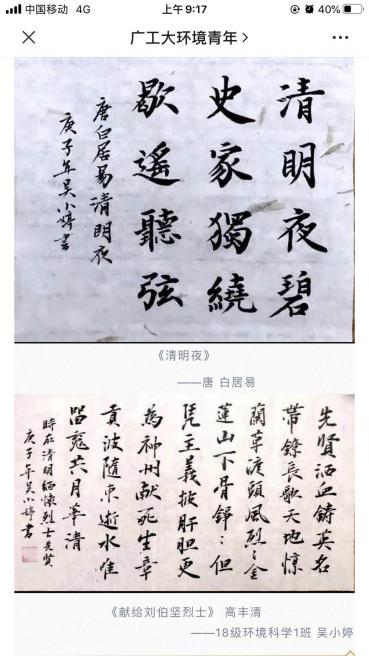 中国移动 4G 上午 9:17 40%
广工大环境青年
清明夜碧
史家獨繞
歇遥聽弦
唐白居易清明夜
庚子年吴小婷書
《清明夜》
——唐 白居易
先賢洒血鑄英名
帶鐐長歌天地驚
蘭草渡頭風烈〻金
蓮山下骨錚〻但
凭主義披肝胆更
為神州獻死生章
貢波隨東逝水惟
留魂共月華清
時在清明緬懷烈士先賢
庚子年吴小婷書
《献给刘伯坚烈士》 高丰清
——18级环境科学1班 吴小婷